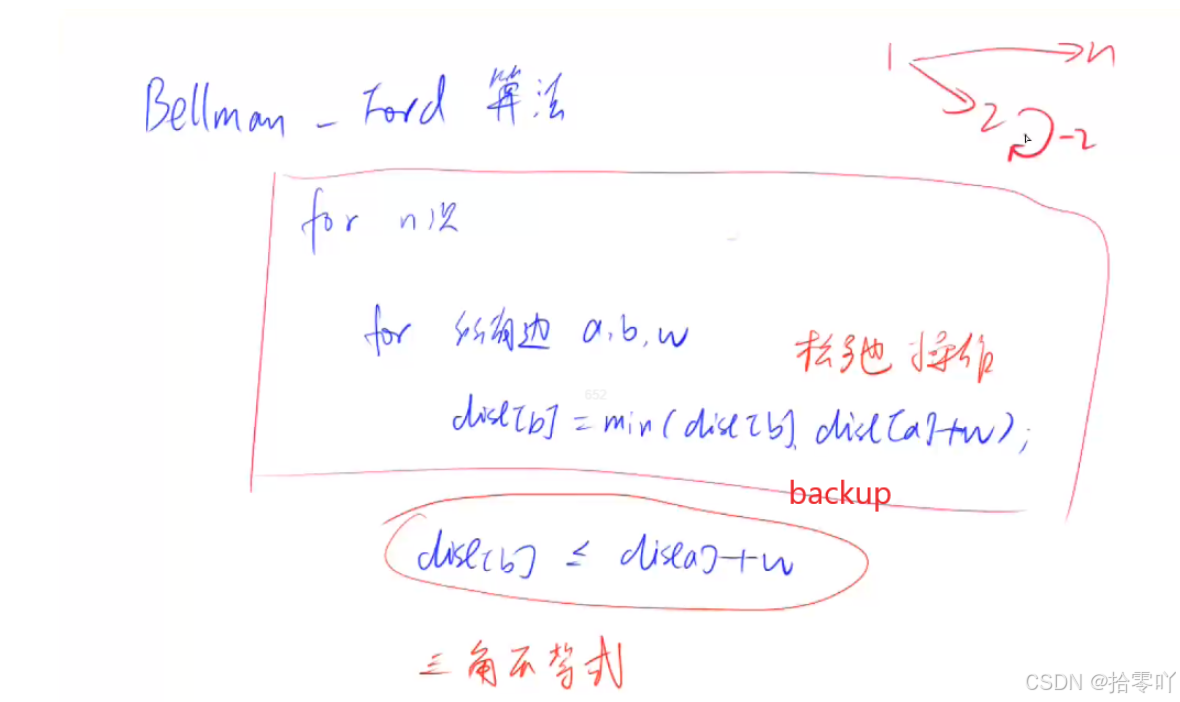 1 → n
Bellman - Ford 算法
2 -2
for n次
for 所有边 a,b,w
松弛操作
652
dist[b] = min(dist[b], dist[a]+w);
backup
dist[b] ≤ dist[a]+w
三角不等式
CSDN @拾零吖